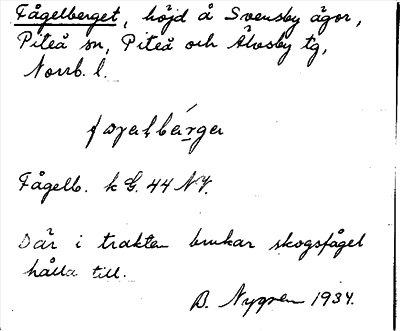 Fågelberget, höjd å Svensby ägor,
Piteå sn, Piteå och Älvsby tg,
Norrb. l.
Fågelb. k G. 44 NV.
Där i trakten brukar skogsfågel
hålla till.
B. Nygren 1934.